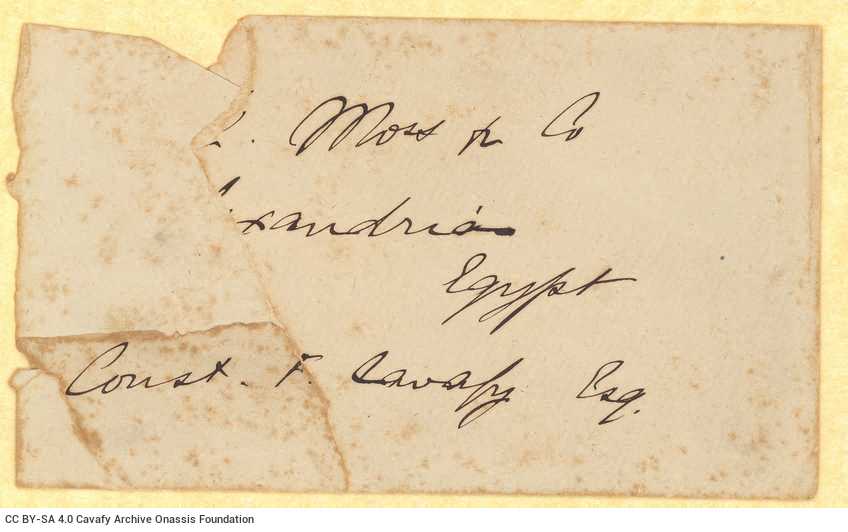 R. Moss & Co
exandria
Egypt
Const. F. Cavafy Esq.
CC BY-SA 4.0 Cavafy Archive Onassis Foundation